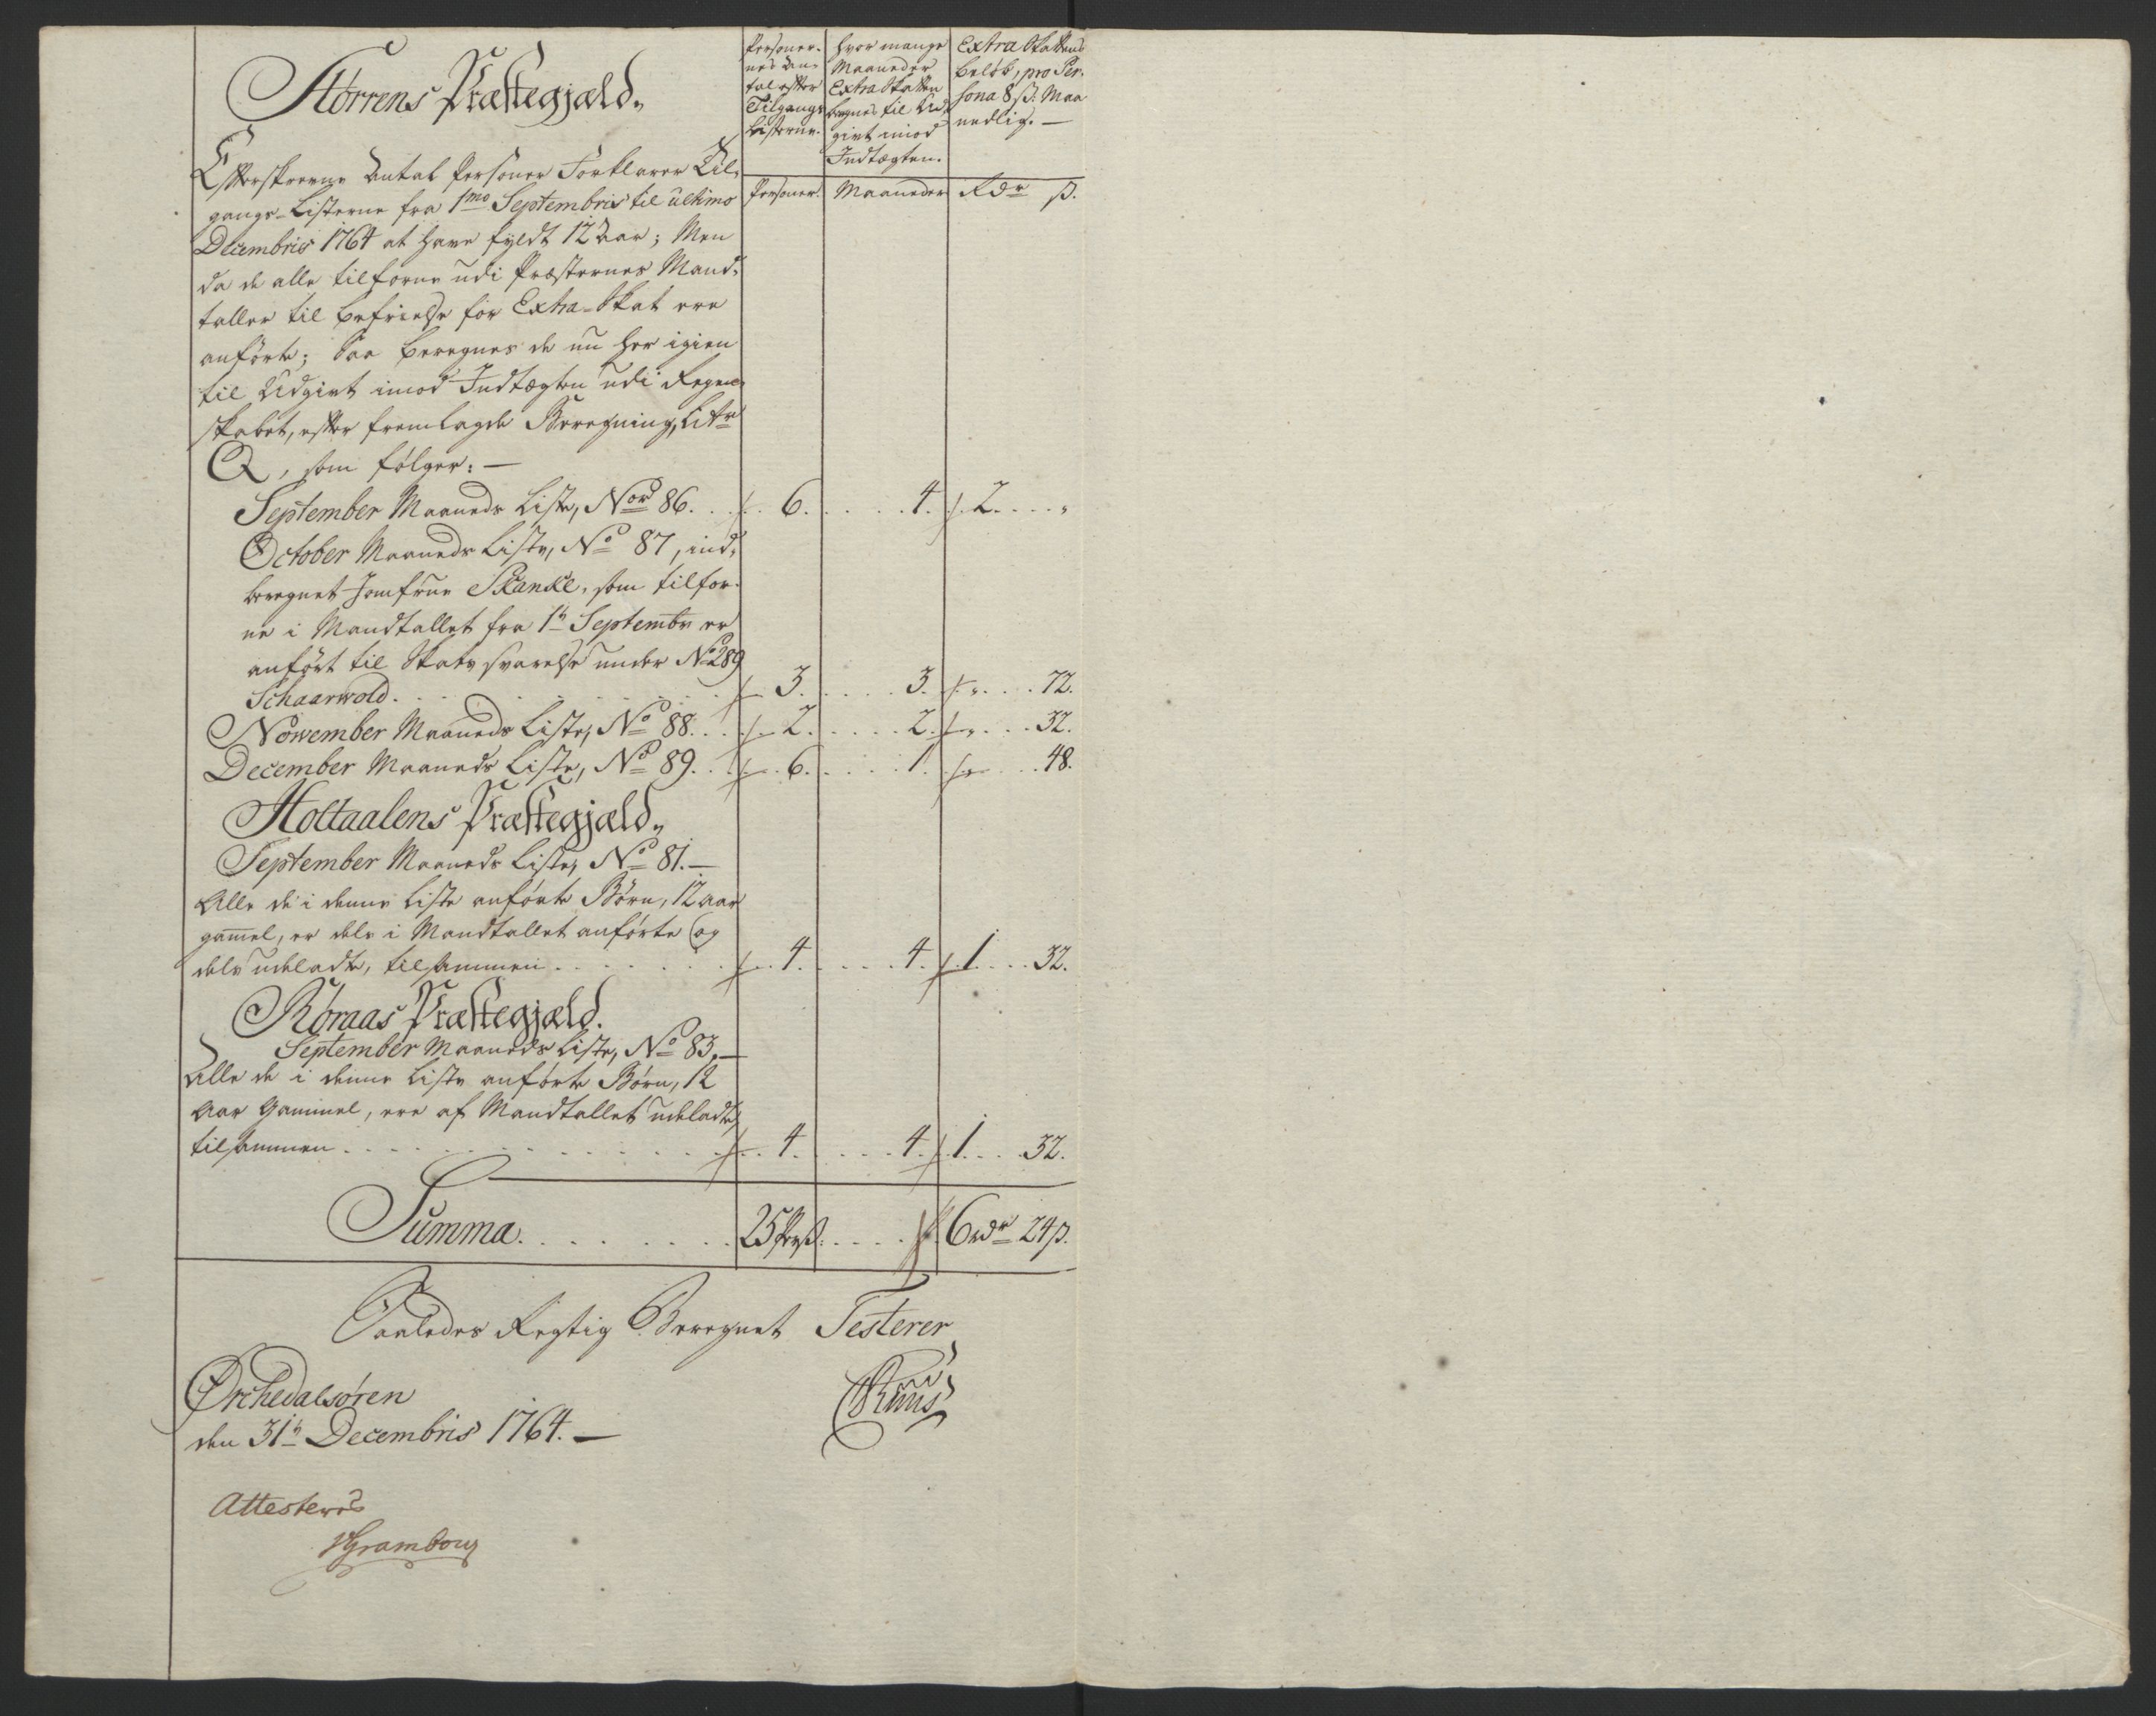 Størrens Præstegjæld.
Personer-
nes An-
tal efter
Tilgangs
Listerne.
hvor mange
Maaneder
Extra Skatten
beregnes til Ud-
givt imod
Indtægten.
Extra Skattens
beløb, pro Per-
sona 8 ß. Maa
nedlig. —
Personer. Maaneder Rdr ß.
Efterskrevne Antal Personer Forklarer Til-
gangs-Listerne fra 1mo Septembris til ultimo
Decembris 1764 at have fyldt 12 Aar; Men
da de alle tilforne udi Præsternes Mand-
taller til befrielse for Extra-Skat ere
anførte; Saa beregnes de nu her igien
til Udgivt imod Indtægten udi Regen-
skabet, efter fremlagde Beregning, Litr
Q, som følger: —
September Maaneds Liste, Nor 86. . . 6. . . . . 4. 2. . . . „
October Maaneds Liste, No 87, ind-
beregnet Jomfrue Skanke, som tilfor-
ne i Mandtallet fra 1te Septembr er
anført til Skats svarelse under No 289
Schaarwold. . . . 3. . . . . 3. „ . . . 72.
November Maaneds Liste, No 88. . . 2. . . . . 2. „ . . . 32.
December Maaneds Liste, No 89. . . 6. . . . . 1. „ . . . 48.
Holtaalens Præstegjæld.
September Maaneds Liste, No 81. —
Alle de i denne Liste anførte Børn, 12 aar
gam̄el, er dels i Mandtallet anførte og
dels udeladte, tilsammen . . . . 4. . . . . 4. 1. . . . 32.
Røraas Præstegjæld.
September Maaneds Liste, No 83. —
Alle de i denne Liste anførte Børn, 12
Aar Gammel, ere af Mandtallet udeladte,
tilsammen . . . . 4. . . . . 4. 1. . . . 32.
Summa. . . . . 25 Pers: . . . . 6 rdr 24 ß.
Saaledes Regtig Beregnet Testerer
Ørchedalsøren
den 31te Decembris 1764. —
Attesteres